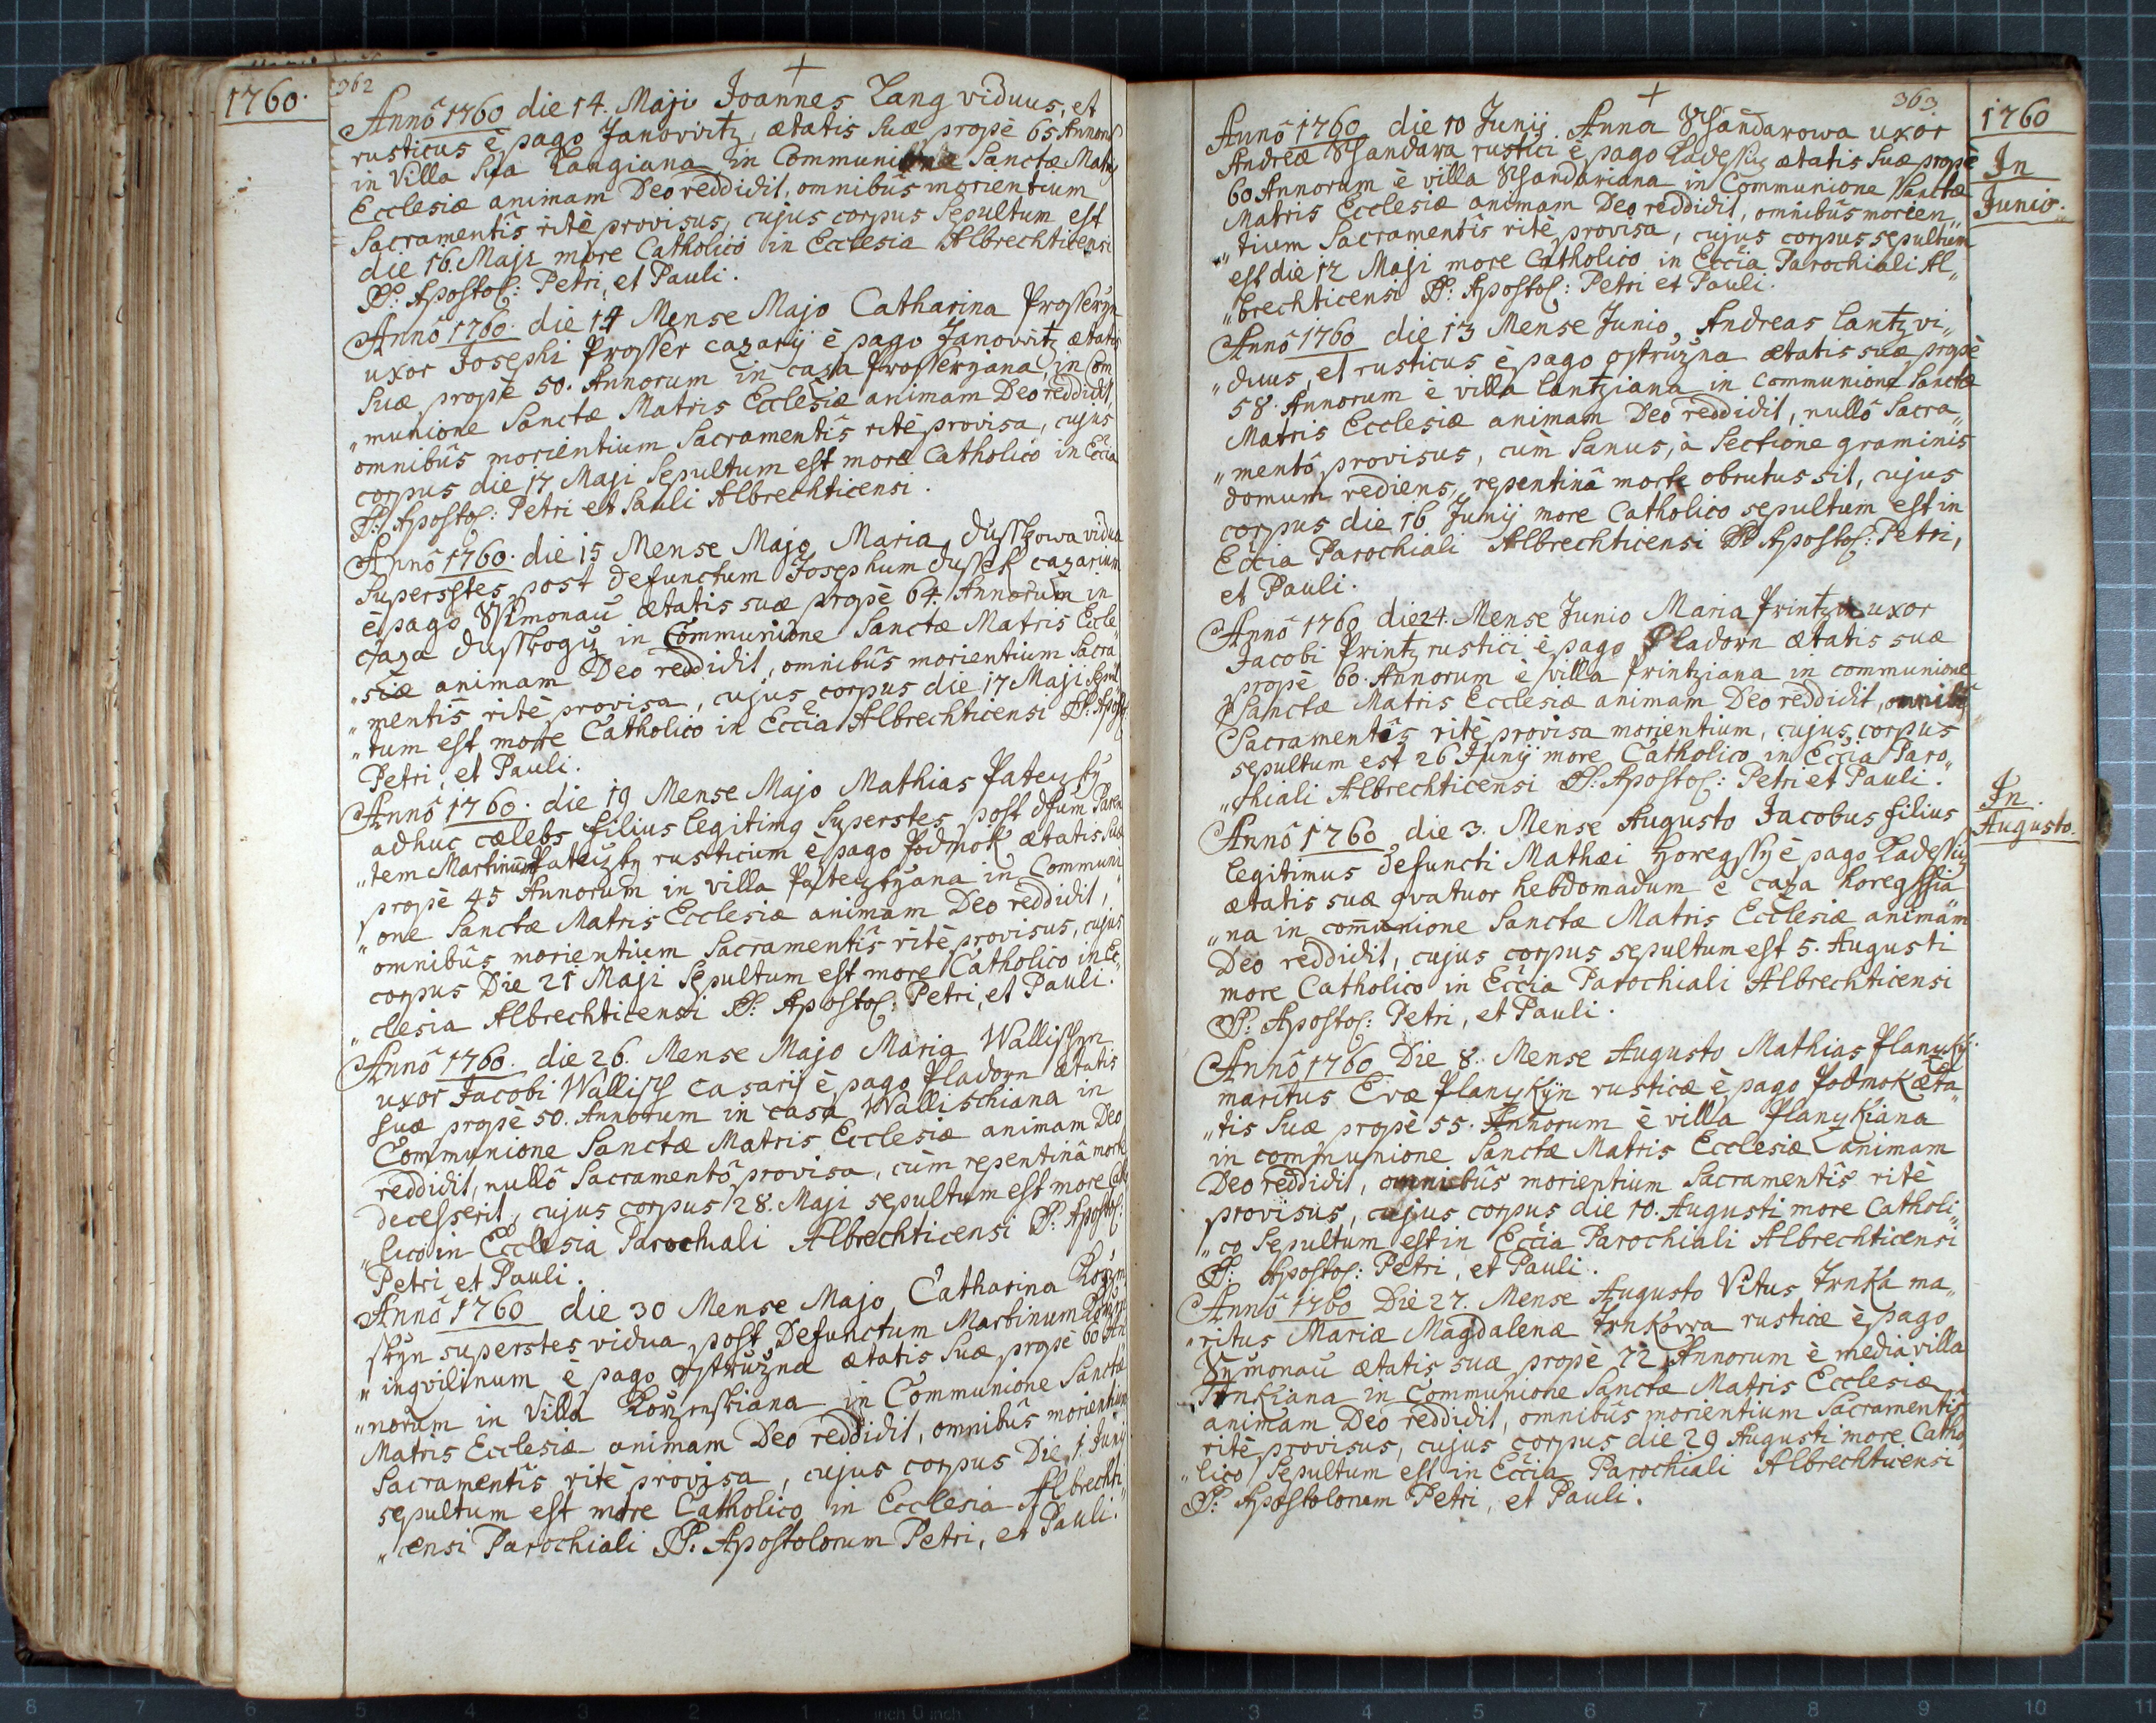 1760.
362
Annô 1760 die 14. Maji Joannes Lang viduus, et
rusticus è pago Janovitz, ætatis suæ propè 65 Annorũ
in Villa sua Langiana in Communione Sanctæ Matris
Ecclesiæ animam Deo reddidit, omnibûs morientium
Sacramentîs ritè provisus, cujus corpus Sepultum est
die 16. Maji more Catholicô in Ecclesia Albrechticensi
SS: Apostol: Petri, et Pauli.
Annô 1760. die 14 Mense Majo Catharina Prosseryn
uxor Josephi Prosser cazarij è pago Janovitz ætatis
Suæ propè 50. Annorum in caza Prosseryana, in Com
„munione Sanctæ Matris Ecclesiæ animam Deo reddidit,
omnibûs morientium Sacramentîs ritè provisa, cujus
corpus die 17 Maji Sepultum est more Catholicô in Eccia
SS: Apostol: Petri et Pauli Albrechticensi.
Annô 1760. die 15 Mense Majo Maria Dusskowa vidua
Superstes post defunctum Josephum Dussek cazarium
è pago Ssimonaũ ætatis suæ propè 64. Annorũm in
caza Dusskogiz in Communione Sanctæ Matris Eccle
„siæ animam Deo reddidit, omnibûs morientium Sacra
„mentîs ritè provisa, cujus corpus die 17 Maji Sepul
„tum est more Catholicô in Eccia Albrechticensi SS: Apostol:
Petri, et Pauli.
Annô 1760. die 19 Mense Majo Mathias Pateyzby
adhuc cælebs filius legitimg Superstes post dfum Paren
„tem Martinũm Pateyzby rusticum è pago Podmok ætatis suæ
propè 45 Annorum in villa Pateyzbyana in Communi
„one Sanctæ Matris Ecclesiæ animam Deo reddidit,
omnibûs morientium Sacramentîs ritè provisus, cujus
corpus Die 21 Maji Sepultum est more Catholico in Ec
„clesia Albrechticensi SS: Apostol: Petri, et Pauli.
Annô 1760. die 26. Mense Majo Maria Wallischyn
uxor Jacobi Wallisch casarij è pago Pladorn ætatis
suæ propè 50. Annorum in casa Wallischiana in
Communione Sanctæ Matris Ecclesiæ animam Deo
reddidit, nullô Sacramentô provisa, cùm repentinâ morte
decesserit, cujus corpus 28. Maji sepultum est more Catho
„lico in Ecclesia Parochiali Albrechticensi SS: Apostol:
Petri et Pauli.
Annô 1760 die 30 Mense Majo Catharina
superstes vidua post Defunctum Martinum
„ingvilinum è pago Ostrũžna ætatis suæ propè 60 An
„norum in Villa in Communione Sanctæ
Matris Ecclesiæ animam Deo reddidit, omnibûs morientium
Sacramentîs ritè provisa, cujus corpus Die 1 Junij
sepultum est more Catholico in Ecclesia Albrechti
„censi Parochiali SS: Apostolorum Petri, et Pauli.
363
1760
In
Junio.
Annô 1760 die 10 Junij. Anna Schandarowa uxor
Andreæ Schandara rustici è pago Ladessiz ætatis suæ propè
60 Annorum è villa Schandariana in Communione Sanctæ
Matris Ecclesiæ animam Deo reddidit, omnibûs morien„
„tium Sacramentîs ritè provisa, cujus corpus sepultum
est die 12 Maji more Catholico in Eccia Parochiali Al„
„brechticensi SS: Apostol: Petri et Pauli.
Annô 1760 die 13 Mense Junio, Andreas Lantz vi„
„duus, et rusticus è pago Ostrũžna ætatis suæ propè
58. Annorum è villa Lantziana in communione Sanctæ
Matris Ecclesiæ animam Deo reddidit, nullô Sacra„
„mentô provisus, cùm Sanus, à Sectione graminis
domum rediens, repentinâ morte obrutus sit, cujus
corpus die 16 Junij more Catholico sepultum est in
Eccia Parochiali Albrechticensi SS Apostol: Petri,
et Pauli.
Annô 1760 die 24. Mense Junio Maria Printzin uxor
Jacobi Printz rustici è pago Pladorn ætatis suæ
propè 60. Annorum è villa Printziana in communione
Sanctæ Matris Ecclesiæ animam Deo reddidit, omnibg
Sacramentîs ritè provisa morientium, cujus corpus
sepultum est 26 Junij more Catholico in Eccia Paro„
„chiali Albrechticensi SS: Apostol: Petri et Pauli.
In
Augusto.
Annô 1760 die 3. Mense Augusto Jacobus filius
legitimus defuncti Mathæi Horegssy è pago Ladessiz
ætatis suæ qvatuor hebdomadum è caza horegssia
„na in communione Sanctæ Matris Ecclesiæ animam
Deo reddidit, cujus corpus sepultum est 5. Augusti
more Catholico in Eccia Parochiali Albrechticensi
SS: Apostol: Petri, et Pauli.
Annô 1760 Die 8. Mense Augusto Mathias Planyký
maritus Evæ Planykÿn rusticæ è pago Podmok æta„
„tis suæ propè 55. Annorum è villa Planykiana
in communione Sanctæ Matris Ecclesiæ animam
Deo reddidit, omnibûs morientium Sacramentîs ritè
provisus, cujus corpus die 10. Augusti more Catholi„
„co Sepultum est in Eccia Parochiali Albrechticensi
SS: Apostol: Petri, et Pauli.
Annô 1760 Die 27. Mense Augusto Vitus Trnka ma„
„ritus Mariæ Magdalenæ Trnkowa rusticæ è pago
Symonaũ ætatis suæ propè 72 Annorum è media villa
Trnkiana in Communione Sanctæ Matris Ecclesiæ
animam Deo reddidit, omnibus morientium Sacramentîs
ritè provisus, cujus corpus die 29 Augusti more Catho
„lico Sepultum est in Eccia Parochiali Albrechticensi
SS: Apostolorum Petri, et Pauli.